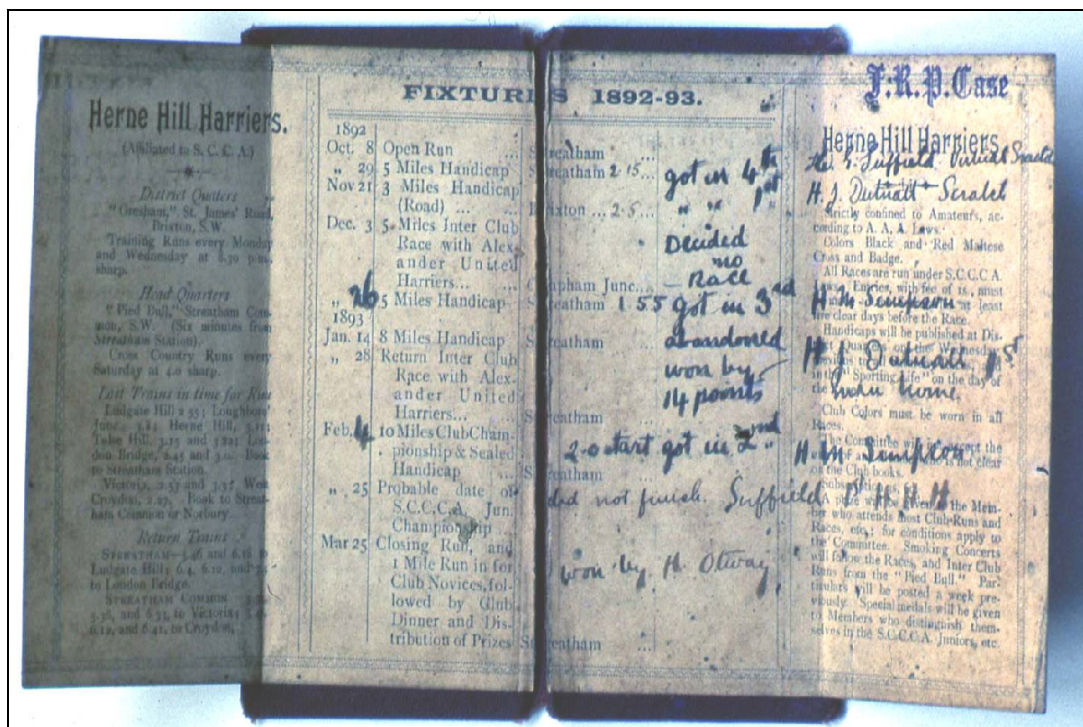 Herne Hill Harriers.
(Affiliated to S. C. C. A.)
District Quarters
"Gresham," St. James' Road,
Brixton, S.W.
Training Runs every Monday
and Wednesday at 8.30 p.m.
sharp.
Head Quarters
"Pied Bull," Streatham Com-
mon, S.W. (Six minutes from
Streatham Station).
Cross Country Runs every
Saturday at 4.0 sharp.
Last Trains in time for Runs
Ludgate Hill 2.55; Loughboro'
Junc. Herne Hill,
Tulse Hill, 3.15 and Lon-
don Bridge, 2.45 and 3.0. Book
to Streatham Station.
Victoria, 2.53 and West
Croydon, Book to Streat-
ham Common or Norbury.
Return Trains
STREATHAM—5.46 and 6.16 to
Ludgate Hill; 6.4, 6.12, and
to London Bridge.
STREATHAM COMMON
5.36, and 6.33, to Victoria;
6.12, and 6.41, to Croydon.
FIXTURES 1892-93.
1892
Oct. 8 Open Run ... Streatham ...
„ 29 5 Miles Handicap Streatham 2.15 ... got in 4th
Nov 21 3 Miles Handicap
(Road) ... ... Brixton ... 2.5 ... „ „ 1st
Dec. 3 5 Miles Inter Club
Race with Alex-
ander United
Harriers... ... Clapham Junc. ... Decided
no
Race
„ 26 5 Miles Handicap Streatham 1.55 got in 3rd
1893
Jan. 14 8 Miles Handicap Streatham abandoned
„ 28 Return Inter Club
Race with Alex-
ander United
Harriers... ... Streatham won by
14 points
Feb. 4 10 Miles Club Cham-
pionship & Sealed
Handicap ... Streatham ... 2-0 start got in 2nd „
„ 25 Probable date of
S.C.C.C.A. Jun.
Championship ... did not finish. Suffield 1st H.H.H
Mar 25 Closing Run, and
1 Mile Run in for
Club Novices, fol-
lowed by Club
Dinner and Dis-
tribution of Prizes Streatham ...
won by H. Otway
F.R.P. Case
Herne Hill Harriers
Suffield Scratch
H. J. Dutnall Scratch
Strictly confined to Amateurs, ac-
cording to A. A. A. Laws.
Colors Black and Red Maltese
Cross and Badge.
All Races are run under S.C.C.C.A
Laws. Entries, with fee of 1s., must
H. M. Simpson at least
five clear days before the Race.
Handicaps will be published at Dis-
trict Quarters on the Wednesday
H. J. Dutnall 1st
in the "Sporting Life" on the day of
the
home.
Club Colors must be worn in all
Races.
The Committee will accept the
H. M. Simpson
is not clear
on the Club books.
A prize will be given to the Mem-
ber who attends most Club Runs and
Races, etc.; for conditions apply to
the Committee. Smoking Concerts
will follow the Races, and Inter Club
Runs from the "Pied Bull." Par-
ticulars will be posted a week pre-
viously. Special medals will be given
to Members who distinguish them-
selves in the S.C.C.C.A. Juniors, etc.